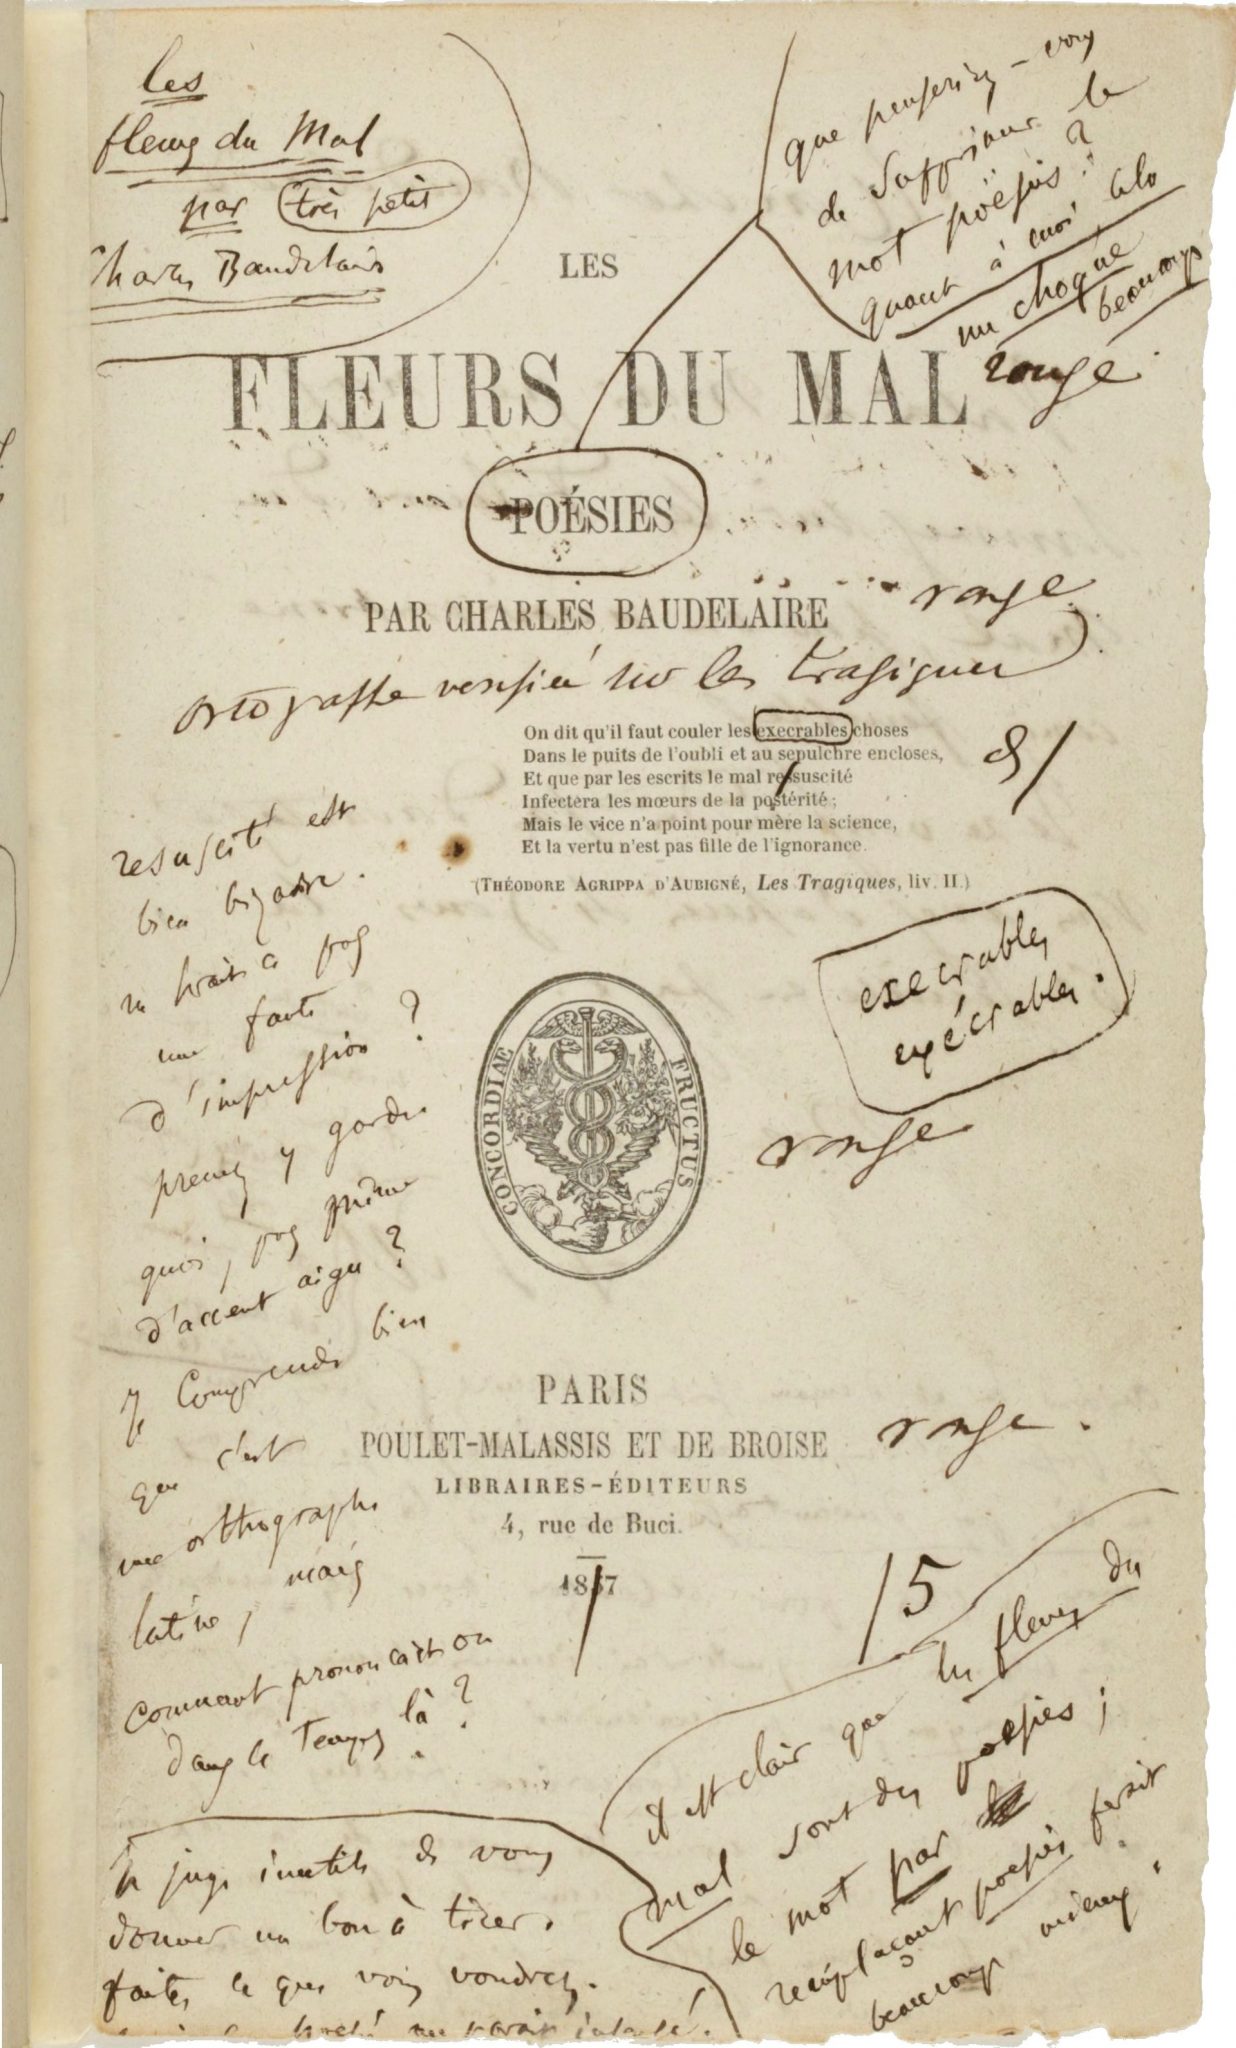 les
fleurs du Mal
par très petit
Charles Baudelaire
que penseriez-vous
de supprimer le
mot poësies?
quant à moi cela
me choque
beaucoup
rouge.
LES
FLEURS DU MAL
POÉSIES
PAR CHARLES BAUDELAIRE
rouge
sur les tragiques
On dit qu'il faut couler les execrables choses
Dans le puits de l'oubli et au sepulchre encloses,
Et que par les escrits le mal ressuscité
Infectera les mœurs de la postérité;
Mais le vice n'a point pour mère la science,
Et la vertu n'est pas fille de l'ignorance.
(THÉODORE AGRIPPA D'AUBIGNÉ, Les Tragiques, liv. II.)
resuscité est
bien bizarre.
ne serait-ce pas
une faute
d'impression?
prenez y garde
quoi, pas même
d'accent aigu?
Je comprends bien
que c'est
une orthographe
latine, mais
comment prononçait on
dans le temps là?
execrables
exécrables.
rouge
CONCORDIÆ FRUCTUS
PARIS
POULET-MALASSIS ET DE BROISE
rouge.
LIBRAIRES-ÉDITEURS
4, rue de Buci.
1857
/5
il est clair que les fleurs du
mal sont des poesies;
le mot par
remplaçant poesies ferait
beaucoup mieux.
Je juge inutile de vous
donner un bon à tirer.
faites ce que vous voudrez.